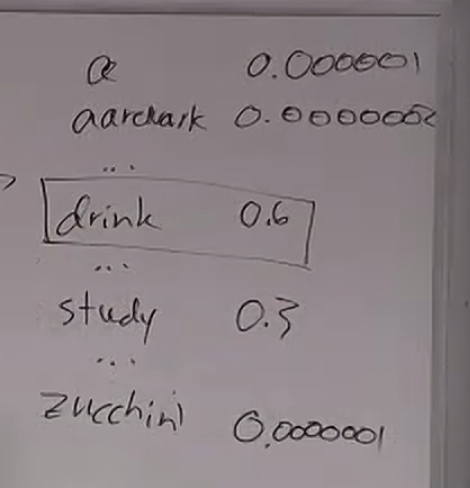 a 0.000001
aardvark 0.0000002
...
drink 0.6
...
study 0.3
...
zucchini 0.0000001